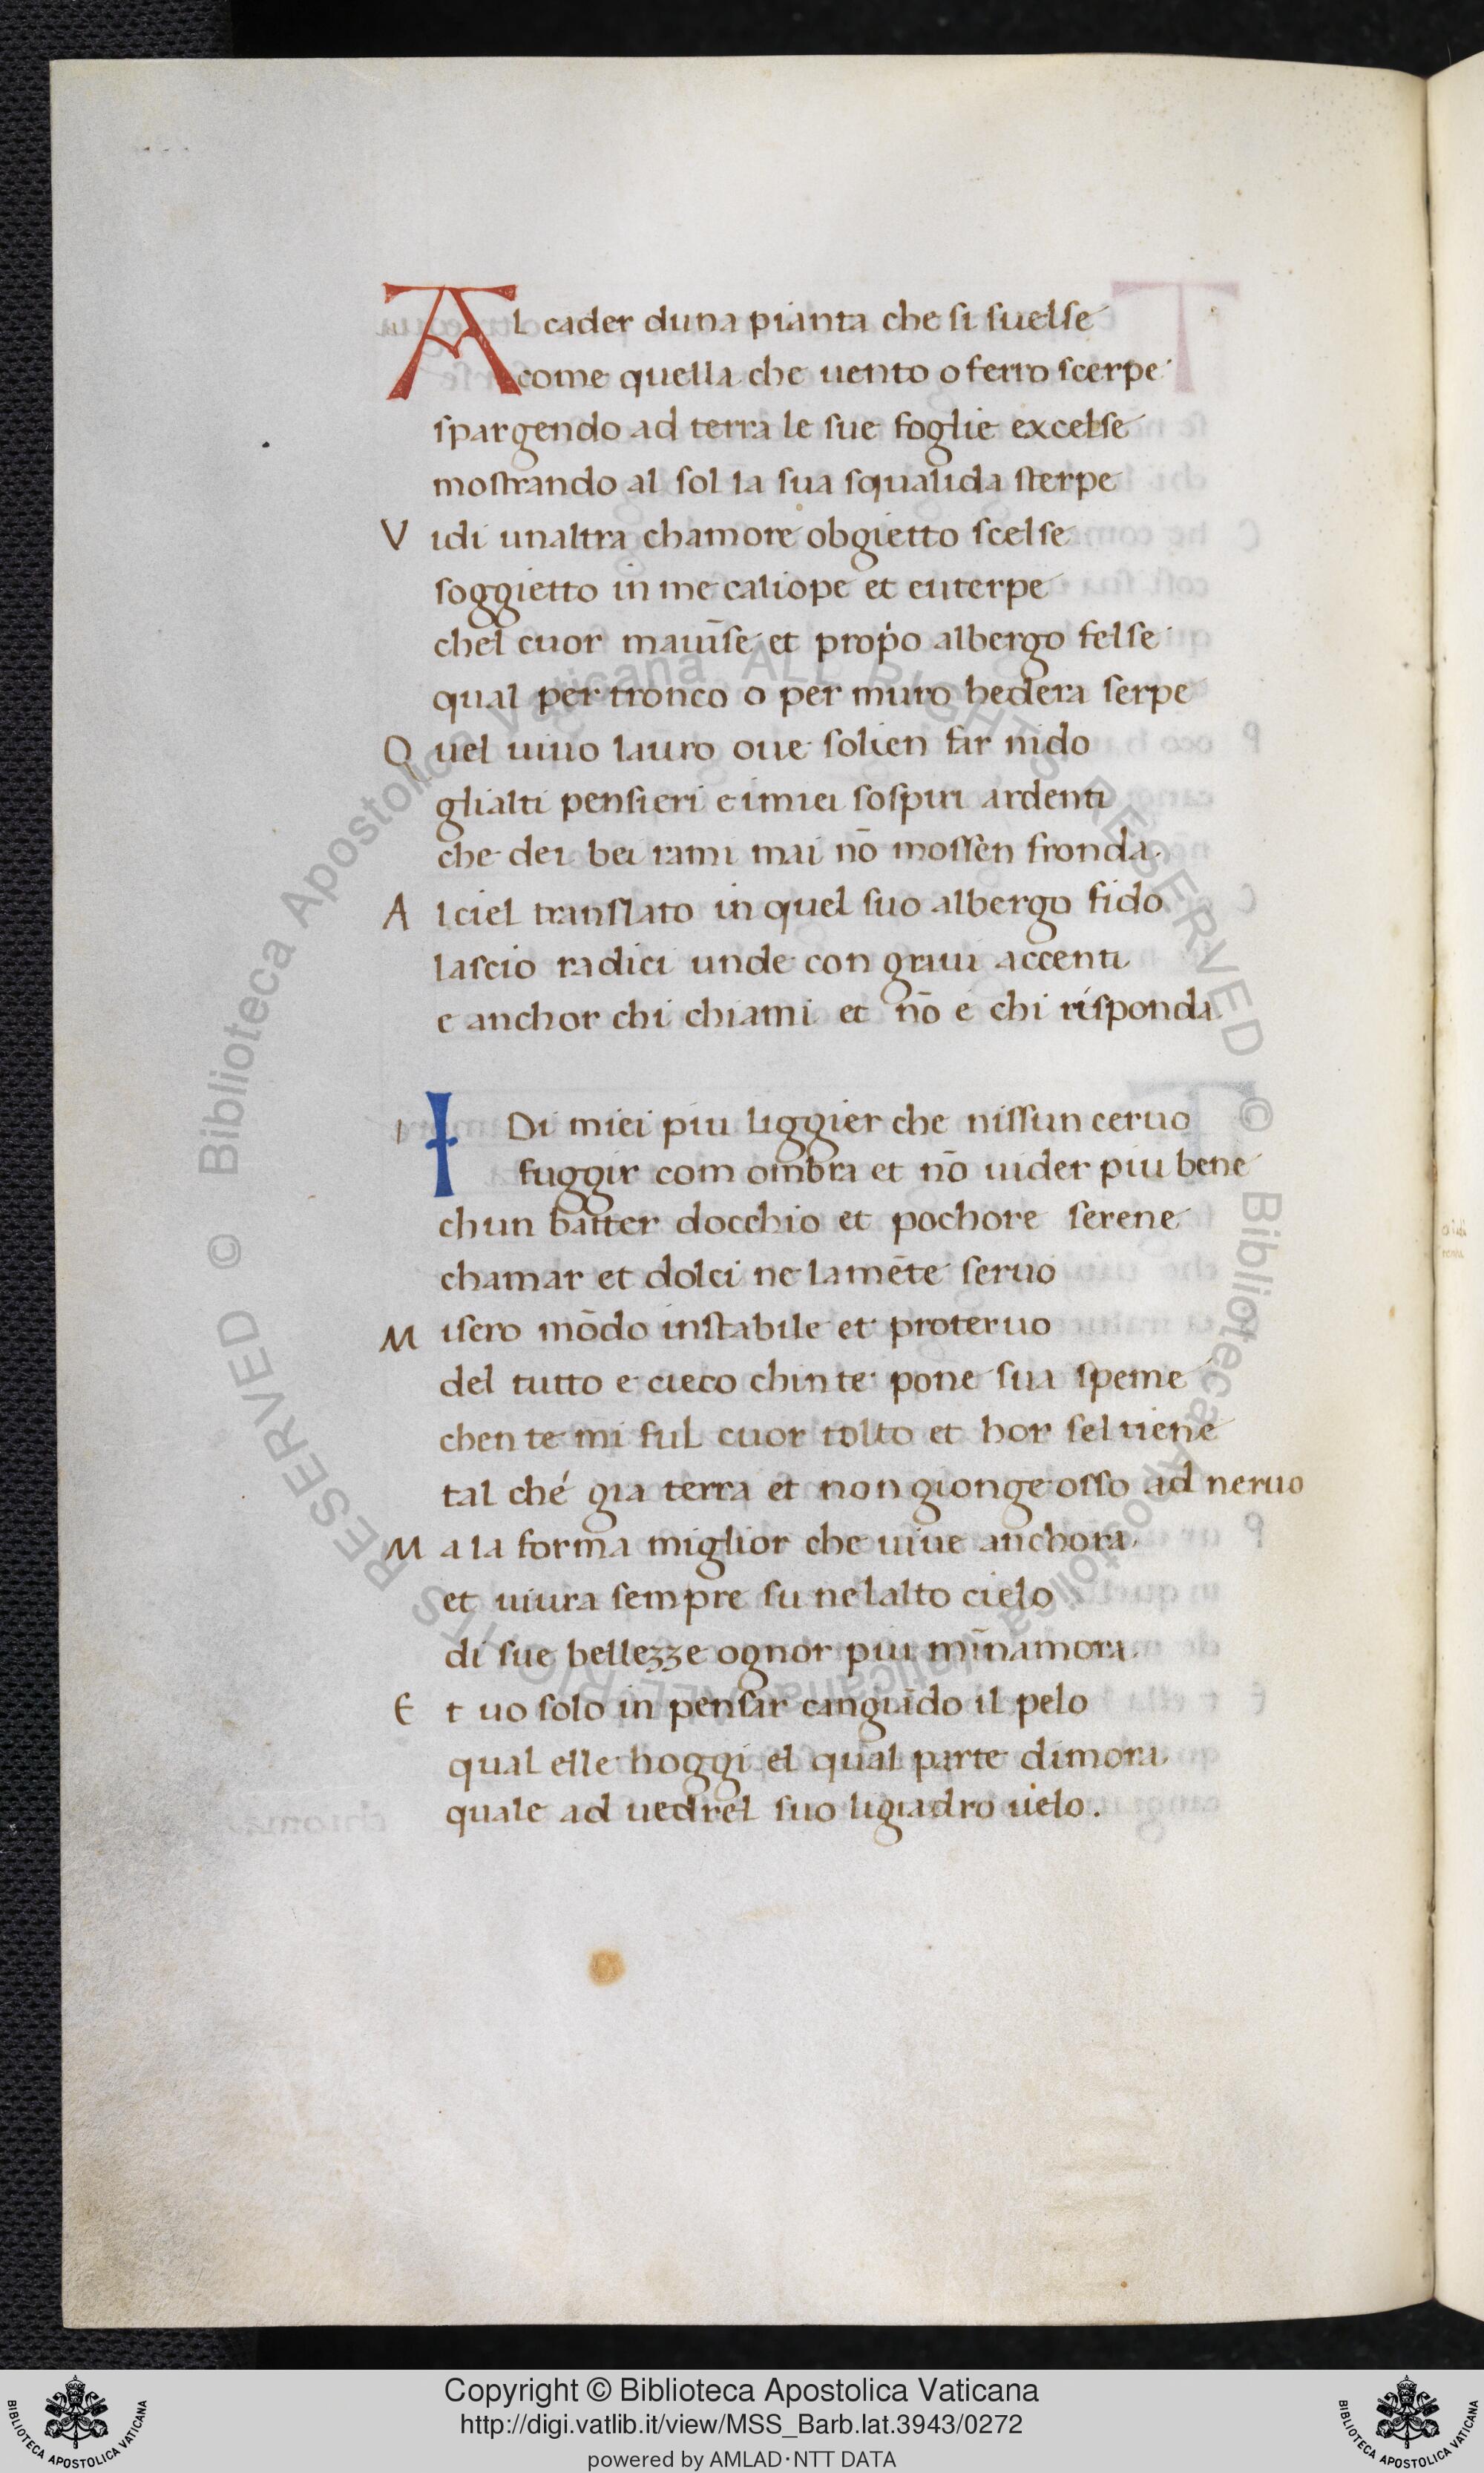 Al cader duna pianta che si suelse
come quella che uento o ferro scerpe
spargendo ad terra le sue foglie excelse
mostrando al sol la sua squalida sterpe
Vidi unaltra chamore obgietto scelse
soggietto in me caliope et euterpe
chel cuor mauīse et prop̍o albergo felse
qual per tronco o per muro hedera serpe
Quel uiuo lauro oue solien far nido
glialti pensieri e imiei sospiri ardenti
che dei bei rami mai nō mossen fronda
Al ciel translato in quel suo albergo fido
lascio radici unde con graui accenti
e anchor chi chiami et nō e chi risponda
I Di miei piu liggier che nissun ceruo
fuggir com ombra et nō uider piu bene
chun batter docchio et pochore serene
chamar et dolci ne lamēte seruo
Misero mōdo instabile et proteruo
del tutto e cieco chin te pone sua speme
chen te mi ful cuor tolto et hor sel tiene
tal ché gia terra et non gionge osso ad neruo
Ma la forma miglior che uiue anchora
et uiura sempre su nelalto cielo
di sue bellezze ognor piu mīnamora
Et uo solo in pensar cangiādo il pelo
qual elle hoggi el qual parte dimora
quale ad uedrel suo ligiadro uelo.
© Biblioteca Apostolica Vaticana ALL RIGHTS RESERVED
© Biblioteca Apostolica Vaticana ALL RIGHTS RESERVED
Copyright © Biblioteca Apostolica Vaticana
http://digi.vatlib.it/view/MSS_Barb.lat.3943/0272
powered by AMLAD·NTT DATA
BIBLIOTECA APOSTOLICA VATICANA
BIBLIOTECA APOSTOLICA VATICANA